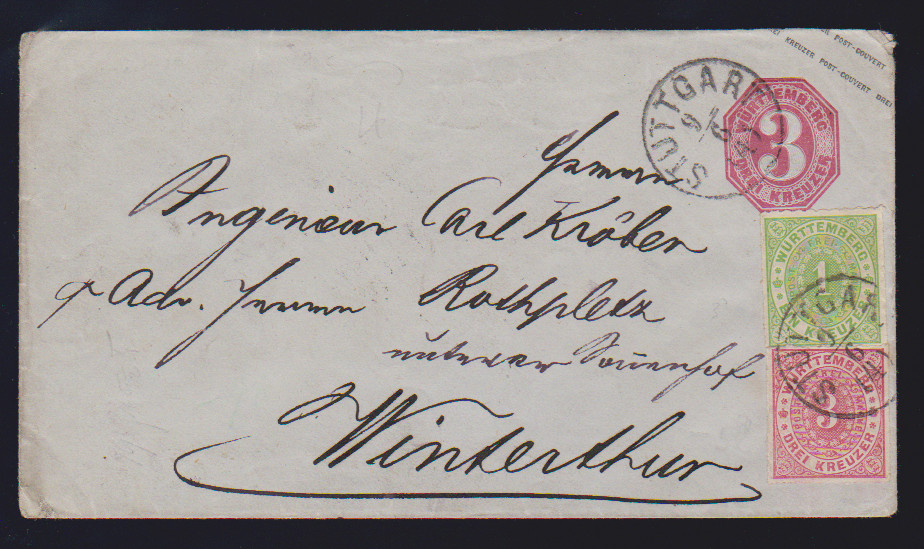 EI KREUZER POST-COUVERT
KREUZER POST-COUVERT DREI
STUTTGART
WÜRTTEMBERG
3
DREI KREUZER
Herrn
Ingenieur Carl Kröber
Adr. Herrn Rothpletz
unterer
Winterthur
WÜRTTEMBERG
1
EIN KREUZ
WÜRTTEMBERG
3
DREI KREUZER